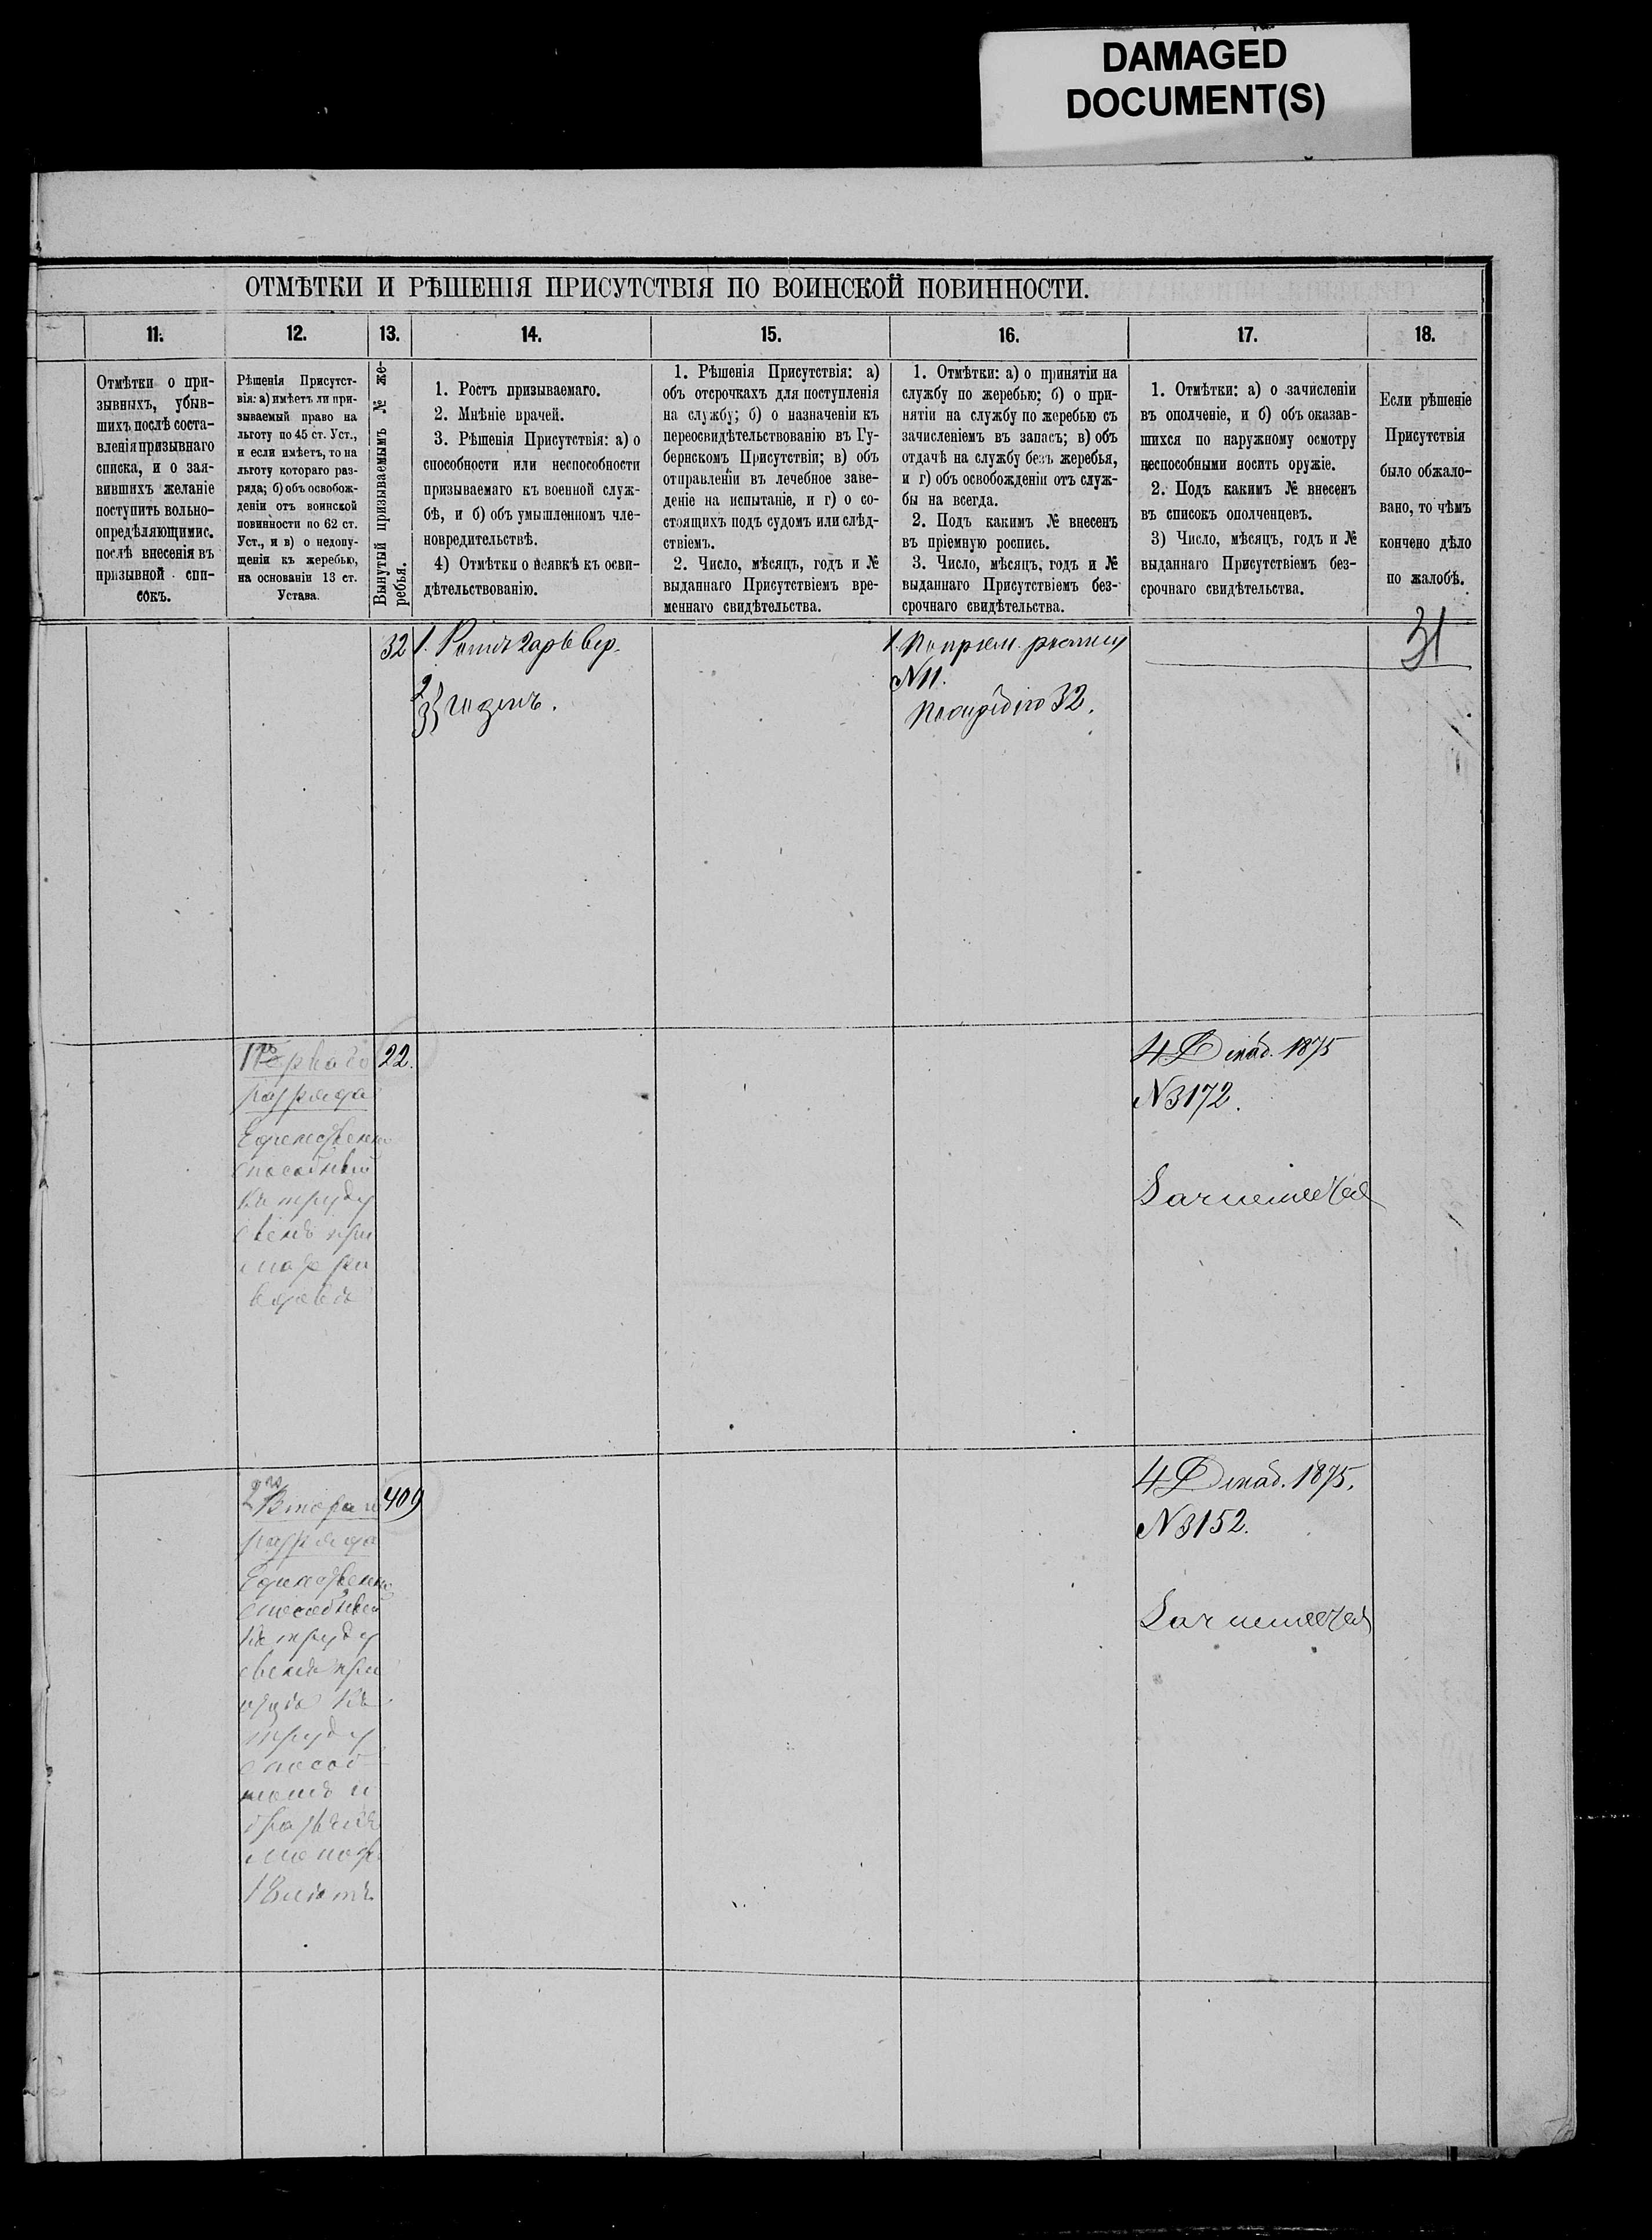 DAMAGED
DOCUMENT(S)
ОТМѢТКИ И РѢШЕНІЯ ПРИСУТСТВІЯ ПО ВОИНСКОЙ ПОВИННОСТИ.
11. 12. 13. 14. 15. 16. 17. 18.
Отмѣтки о при-
зывныхъ, убыв-
шихъ послѣ соста-
вленія призывнаго
списка, и о зая-
вившихъ желаніе
поступить вольно-
опредѣляющимис.
послѣ внесенія въ
призывной спи-
сокъ.
Рѣшенія Присутст-
вія: а) имѣетъ ли при-
зываемый право на
льготу по 45 ст. Уст.,
и если имѣетъ, то на
льготу котораго раз-
ряда; б) объ освобож-
деніи отъ воинской
повинности по 62 ст.
Уст., и в) о недопу-
щеніи къ жеребью,
на основаніи 13 ст.
Устава.
Вынутый призываемымъ № же-
ребья.
1. Ростъ призываемаго.
2. Мнѣніе врачей.
3. Рѣшенія Присутствія: а) о
способности или неспособности
призываемаго къ военной служ-
бѣ, и б) объ умышленномъ чле-
новредительствѣ.
4) Отмѣтки о неявкѣ къ осви-
дѣтельствованію.
1. Рѣшенія Присутствія: а)
объ отсрочкахъ для поступленія
на службу; б) о назначеніи къ
переосвидѣтельствованію въ Гу-
бернскомъ Присутствіи; в) объ
отправленіи въ лечебное заве-
деніе на испытаніе, и г) о со-
стоящихъ подъ судомъ или слѣд-
ствіемъ.
2. Число, мѣсяцъ, годъ и №
выданнаго Присутствіемъ вре-
меннаго свидѣтельства.
1. Отмѣтки: а) о принятіи на
службу по жеребью; б) о при-
нятіи на службу по жеребью съ
зачисленіемъ въ запасъ; в) объ
отдачѣ на службу безъ жеребья,
и г) объ освобожденіи отъ служ-
бы на всегда.
2. Подъ какимъ № внесенъ
въ пріемную роспись.
3. Число, мѣсяцъ, годъ и №
выданнаго Присутствіемъ без-
срочнаго свидѣтельства.
1. Отмѣтки: а) о зачисленіи
въ ополченіе, и б) объ оказав-
шихся по наружному осмотру
неспособными носить оружіе.
2. Подъ какимъ № внесенъ
въ списокъ ополченцевъ.
3) Число, мѣсяцъ, годъ и №
выданнаго Присутствіемъ без-
срочнаго свидѣтельства.
Если рѣшеніе
Присутствія
было обжало-
вано, то чѣмъ
кончено дѣло
по жалобѣ.
32
1. Ростъ 2 ар 6 вер.
2
3} годенъ.
1. По прiем. росписи
N 11.
32.
31
Перваго
разряда
Единственный
способный
къ труду
сынъ при
матери
вдовѣ
22.
4 Декаб. 1875
N 3172.
2го
Втораго
разряда
Единственный
способный
къ труду
сынъ при
отцѣ къ
труду
способ-
номъ и
братьяхъ
409
4 Декаб. 1875.
N 3152.